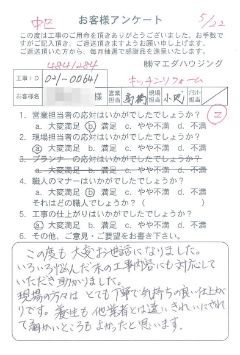 中区
お客様アンケート
5/22
この度は工事のご用命を頂きありがとうございました。お手数で
すがご記入頂き、ご返送頂きますようお願い申し上げます。
ご返送頂いた方には、毎月抽選で感謝品を進呈いたします。
484/284
㈱マエダハウジング
工事ID
041-00641
キッチンリフォーム
お客様名
様
営業担当
現場担当
小沢
1. 営業担当者の応対はいかがでしたでしょうか?
a. 大変満足 b. 満足 c. やや不満 d. 不満
2. 現場担当者の応対はいかがでしたでしょうか?
a. 大変満足 b. 満足 c. やや不満 d. 不満
3. プランナーの応対はいかがでしたでしょうか?
a. 大変満足 b. 満足 c. やや不満 d. 不満
4. 職人のマナーはいかがでしたでしょうか?
a. 大変満足 b. 満足 c. やや不満 d. 不満
それはどの職人でしょうか?( )
5. 工事の仕上がりはいかがでしたでしょうか?
a. 大変満足 b. 満足 c. やや不満 d. 不満
6. その他、ご意見・ご要望をお書き下さい
この度も大変お世話になりました。
いろいろ悩んだ末の工事内容にも対応して
いただき助かりました。
現場の方々はとても丁寧で気持ちの良い仕上が
りです。養生も他業者とは違いきれいにされて
て細かいところもよかったと思います。